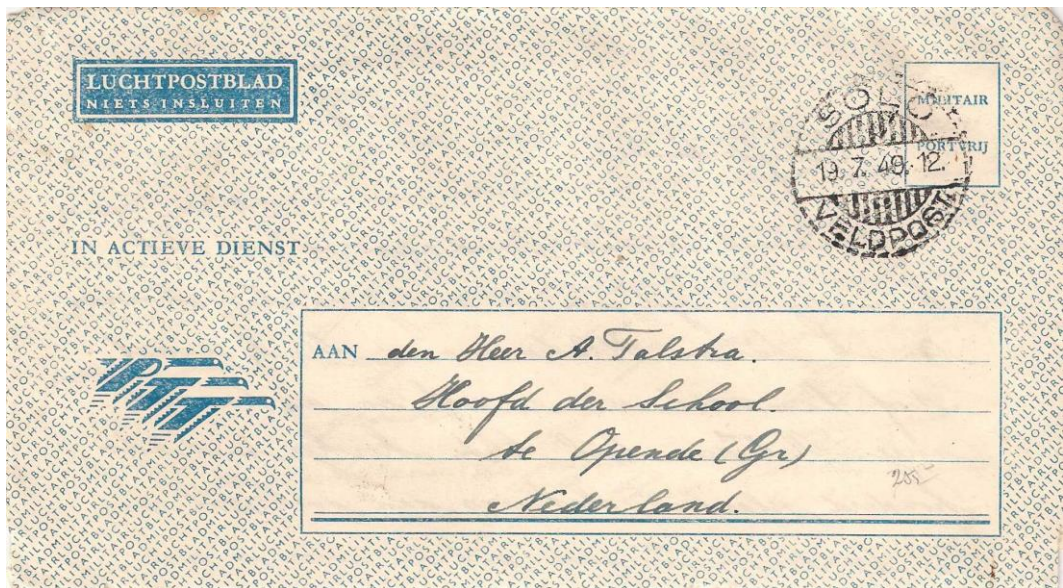 LUCHTPOSTBLAD
NIETS INSLUITEN
MILITAIR
PORTVRIJ
SOLO
19.7.49.12.
VELDPOST
IN ACTIEVE DIENST
PTT
AAN den Heer A. Talstra.
Hoofd der School.
te Opende (Gr)
Nederland.